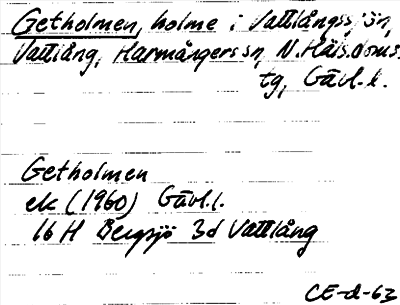 Getholmen, holme i Vattlångssjön,
Vattlång, Harmångers sn, N. Häls. doms.
tg, Gävl. l.
Getholmen
ek (1960) Gävl. l.
16 H Bergsjö 3d Vattlång
CE-d-63